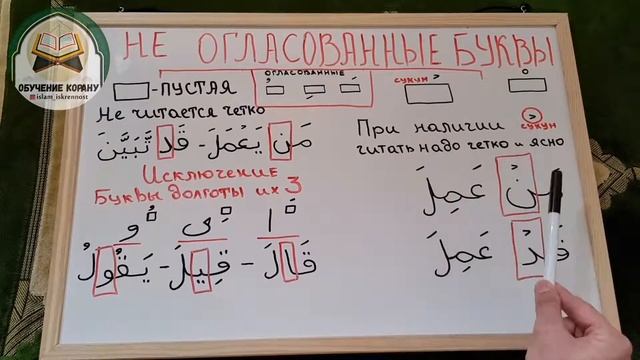 НЕ ОГЛАСОВАННЫЕ БУКВЫ
ОБУЧЕНИЕ КОРАНУ
islam_iskrennost
-ПУСТАЯ
ОГЛАСОВАННЫЕ
сукун
Не читается четко
مَن يَعْمَلَ - قَد تَّبَيَّنَ
Исключение
Буквы долготы их 3
ا - ى - و
قَالَ - قِيلَ - يَقُولُ
При наличии сукун
читать надо четко и ясно
مَنْ عَمِلَ
قَدْ عَمِلَ